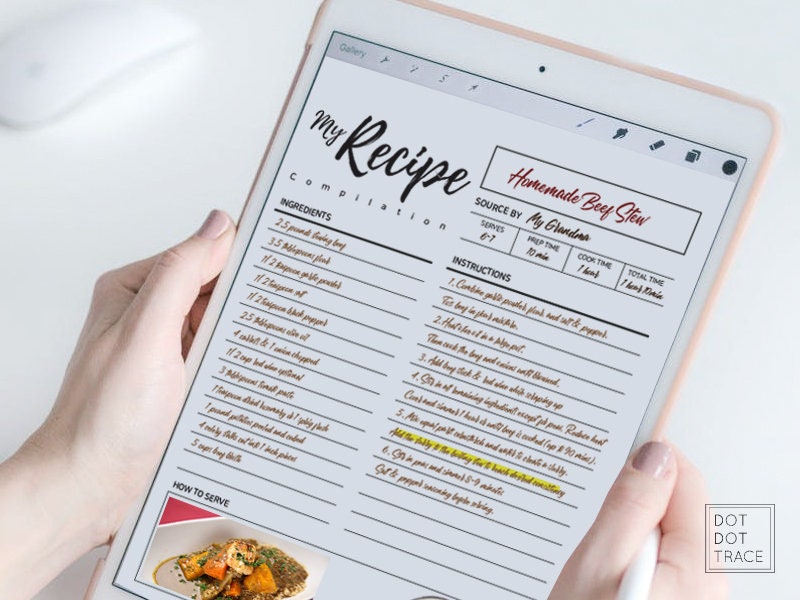 Gallery
My Recipe
Compilation
Homemade Beef Stew
SOURCE BY My Grandma
SERVES
6-7
PREP TIME
10 min
COOK TIME
1 hour
TOTAL TIME
1 hour 10 min
INGREDIENTS
2.5 pounds stewing beef
3.5 tablespoons flour
1/2 teaspoon garlic powder
1/2 teaspoon salt
1/2 teaspoon black pepper
2.5 tablespoons olive oil
4 carrots & 1 onion chopped
1/2 cup red wine optional
3 tablespoons tomato paste
1 teaspoon dried rosemary or 1 sprig fresh
1 pound potatoes peeled and cubed
4 celery stalks cut into 1 inch pieces
5 cups beef broth
HOW TO SERVE
INSTRUCTIONS
1. Combine garlic powder, flour and salt & pepper.
Toss beef in flour mixture.
2. Heat olive oil in a large pot.
Then cook the beef and onions until browned.
3. Add beef stock & red wine while scraping up
4. Stir in all remaining ingredients except for peas. Reduce heat
Cover and simmer 1 hour or until beef is cooked (up to 90 min).
5. Mix equal parts cornstarch and water to create a slurry.
Add the slurry to the boiling stew to reach desired consistency
6. Stir in peas and simmer 5-9 minutes
Salt & pepper seasoning before serving.
DOT
DOT
TRACE